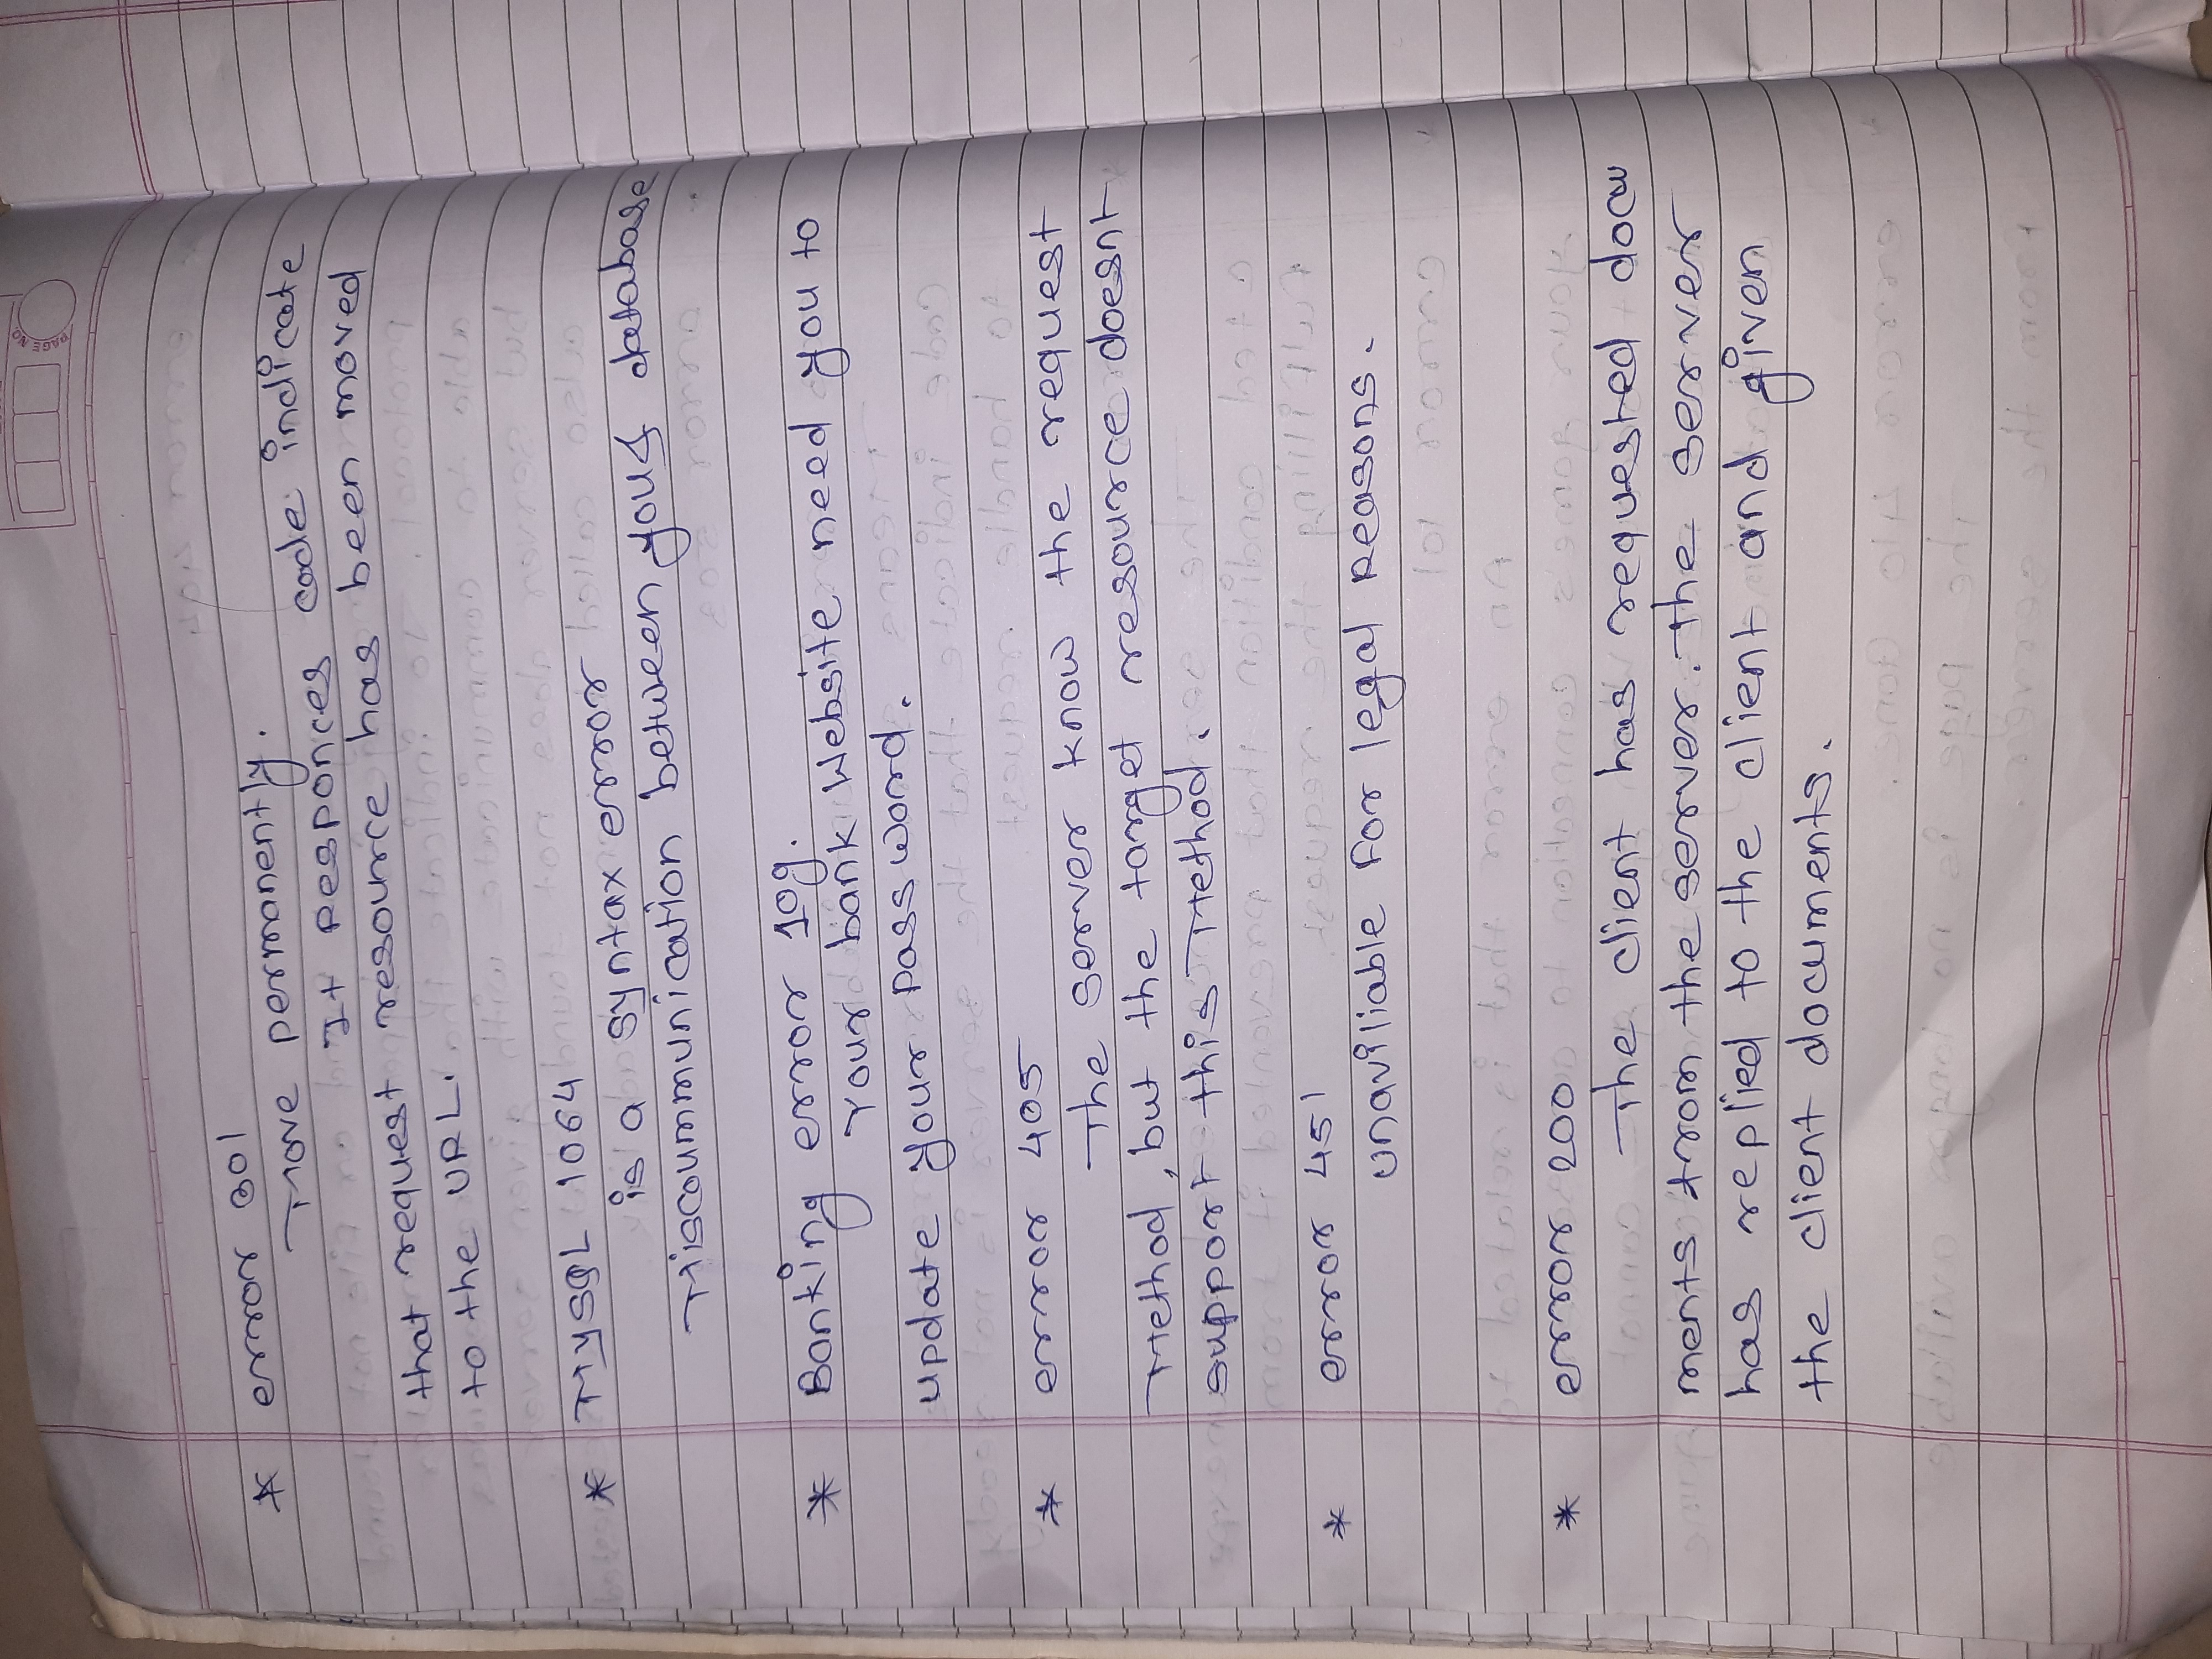 PAGE NO.
* error 301
Move permanently.
It Responces code indicate
that request resource has been moved
to the URL.
* MySQL 1064
is a syntax error
Miscoummunication between you & database
* Banking error 109.
Your bank Website need you to
update your password.
* error 405
The server know the request
Method, but the target resource doesnt
support this Method.
* error 451
unaviliable for legal Reasons.
* error 200
The client has requested docu
ments from the server. The server
has replied to the client and given
the client documents.